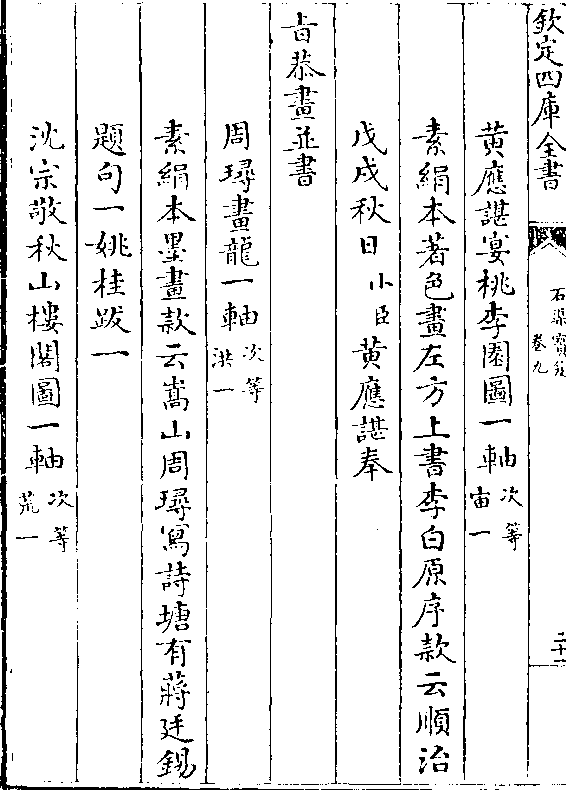 欽定四庫全書
石渠寶笈
卷九
黄應諶宴桃李園圖一軸 次等 宙一
素絹本著色畫左方上書李白原序款云順治
戊戌秋日小臣黄應諶奉
旨恭畫並書
周璕畫龍一軸 次等 洪一
素絹本墨畫款云嵩山周璕寫詩塘有蔣廷錫
題句一姚桂跋一
沈宗敬秋山樓閣圖一軸 次等 荒一